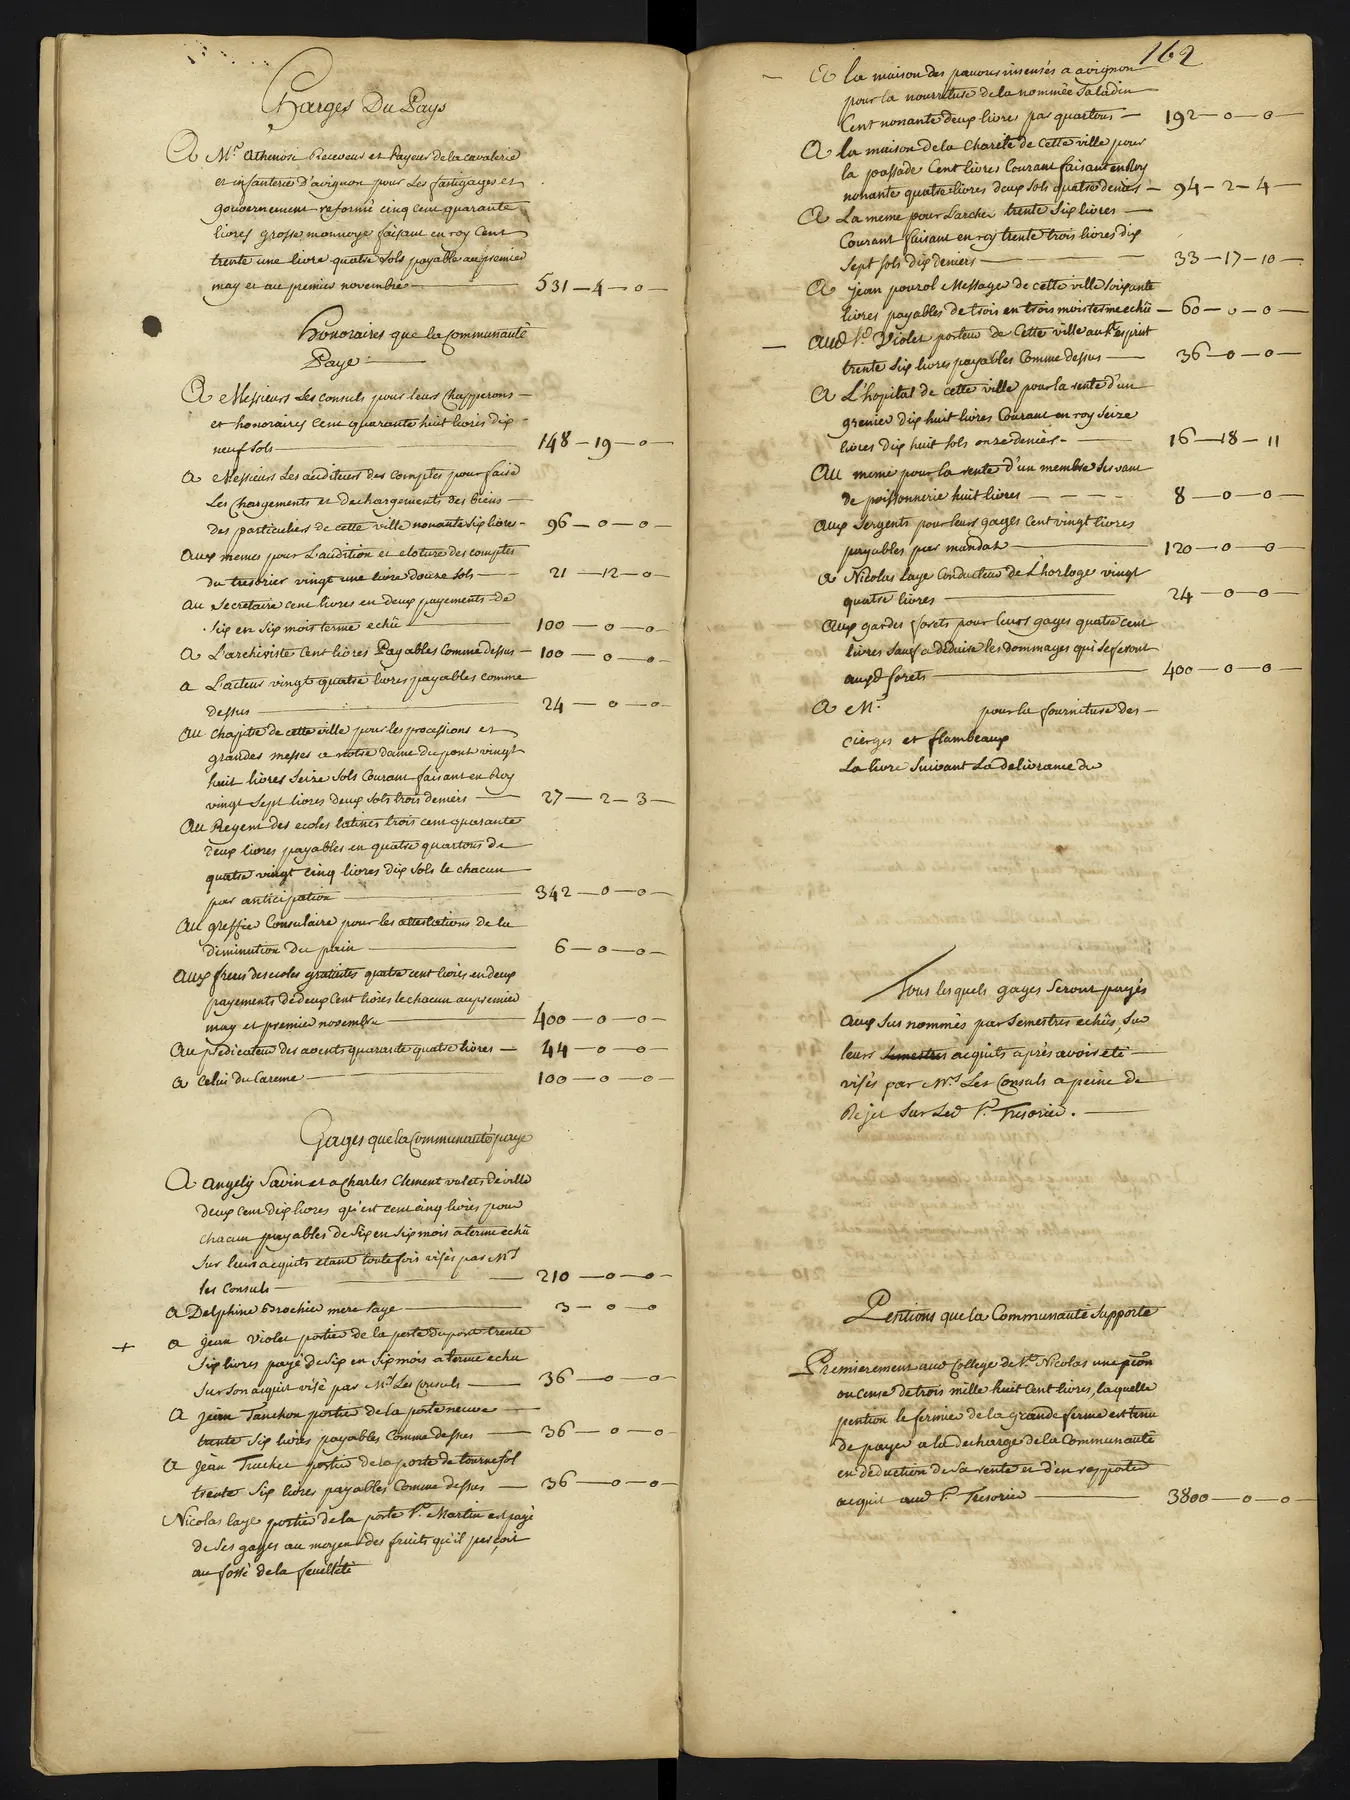 Charges Du Pays
A Mr. athenosi Receveur et Payeur de la cavalerie
et infanterie d'avignon pour Les fastigages et
gouvernement reformé cinq cent quarante
livres grosse monnoye faisant en roy Cent
trente une livre quatre sols payable au premier
may et au premier novembre 531 — 4 — 0
honoraires que la Communauté
Paye
A Messieurs Les consuls pour leurs Chapperons
et honoraires Cent quarante huit livres dix
neuf sols 148 — 19 — 0
a Messieurs Les auditeurs des comptes pour faire
Les Chargements et dechargements des biens
des particuliers de cette ville nonante six livres 96 — 0 — 0
aux memes pour L'audition et cloture des comptes
du tresorier vingt une livre douze sols 21 — 12 — 0
au Secretaire cent livres en deux payements de
six en six mois terme echû 100 — 0 — 0
a L'archiviste Cent livres Payables Comme dessus 100 — 0 — 0
a L'acteur vingt quatre livres payables comme
dessus 24 — 0 — 0
au chapitre de cette ville pour les processions et
grandes messes a notre dame du pont vingt
huit livres Seize Sols Courant faisant en Roy
vingt Sept livres deux Sols trois deniers 27 — 2 — 3
au Regent des ecoles latines trois cent quarante
deux livres payables en quatre quartons de
quatre vingt cinq livres dix sols le chacun
par anticipation 342 — 0 — 0
au greffier Consulaire pour les attestations de la
diminution du pain 6 — 0 — 0
aux freres des ecoles gratuites quatre cent livres en deux
payements de deux Cent livres le chacun au premier
may et premier novembre 400 — 0 — 0
au predicateur des avents quarante quatre livres 44 — 0 — 0
a celui du Careme 100 — 0 — 0
Gages que la Communauté paye
A angely Savin et a Charles Clement valets de ville
deux cent dix livres qu'est cent cinq livres pour
chacun payables de six en six mois a terme echû
sur leurs acquits etant toutefois visés par Mrs
les Consuls 210 — 0 — 0
a Delphine Brochier mere sage 3 — 0 — 0
+ a jean Violet portier de la porte du pont trente
six livres payé de six en six mois a terme echu
sur son acquit visé par Mrs Les Consuls 36 — 0 — 0
a jean Tanchon portier de la porte neuve
trente six livres payables Comme dessus 36 — 0 — 0
a jean Truchet portier de la porte de tournefol
trente six livres payables Comme dessus 36 — 0 — 0
Nicolas laye portier de la porte St. Martin est payé
de ses gages au moyen des fruits qu'il perçoit
au fossé de la
162
A la maison des pauvres insensés a avignon
pour la nourriture de la nommée Saladin
Cent nonante deux livres par quartons 192 — 0 — 0
A la maison de la Charité de cette ville pour
la passade Cent livres Courant faisant en Roy
nonante quatre livres deux sols quatre deniers 94 — 2 — 4
a La meme pour L'archer trente six livres
Courant faisant en roy trente trois livres dix
sept sols dix deniers 33 — 17 — 10
a jean pourol Messager de cette ville soixante
livres payables de trois en trois mois terme echû 60 — 0 — 0
Aud Sr. Violet porteur de Cette ville au St. esprit
trente six livres payables Comme dessus 36 — 0 — 0
A L'hopital de cette ville pour la rente d'un
grenier dix huit livres Courant en roy seize
livres dix huit sols onze deniers 16 — 18 — 11
au meme pour la rente d'un membre servant
de poissonnerie huit livres 8 — 0 — 0
aux sergents pour leurs gages Cent vingt livres
payables par mandat 120 — 0 — 0
a Nicolas laye Conducteur de L'horloge vingt
quatre livres 24 — 0 — 0
aux gardes forets pour leurs gages quatre cent
livres sauf a déduire les dommages qui se feront
auxd forets 400 — 0 — 0
a Mr. pour la fourniture des
cierges et flambeaux
La livre suivant La delivrance du
Tous lesquels gages seront payés
aux sus nommés par semestres echûs sur
leurs semestres acquits après avoir eté
visés par Mrs. Les Consuls a peine de
Rejet sur Led Sr. Tresorier.
Pentions que la Communauté supporte
Premierement aud College de St. Nicolas une pion
ou cense de trois mille huit Cent livres, laquelle
pention le fermier de la grande ferme est tenu
de payer a la decharge de la Communauté
en deduction de sa rente et d'en rapporter
acquit aud Sr. Tresorier 3800 — 0 — 0